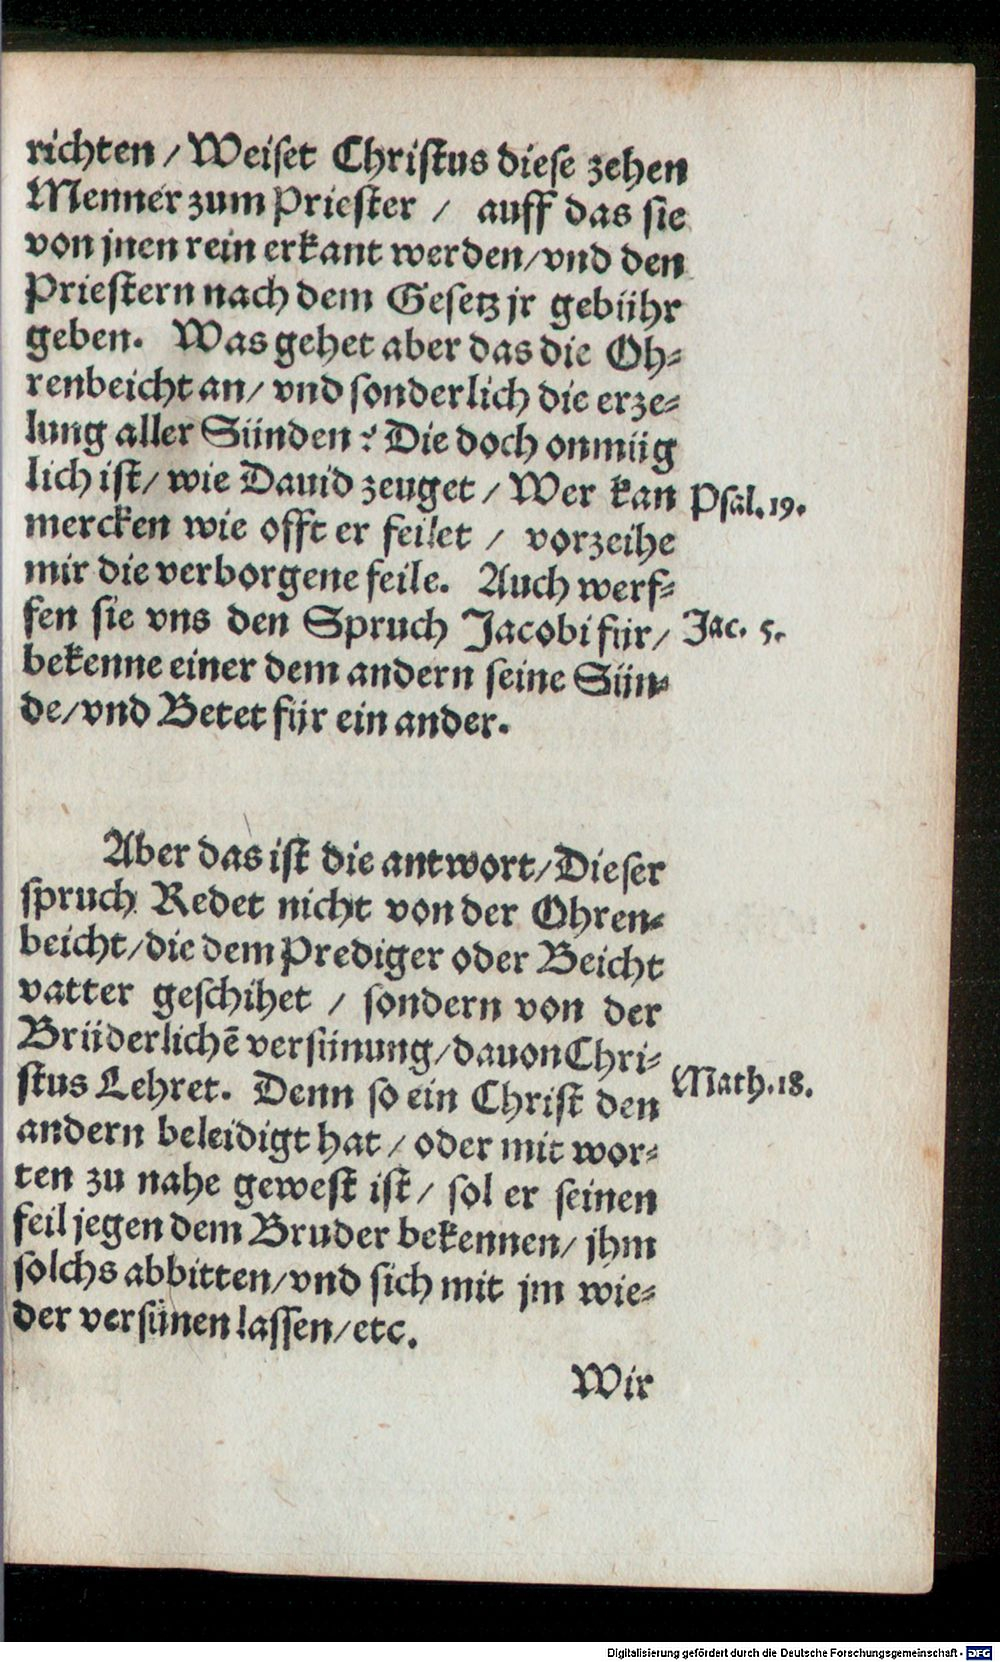 richten / Weiset Christus diese zehen
Menner zum Priester / auff das sie
von jnen rein erkant werden / vnd den
Priestern nach dem Gesetz jr gebühr
geben. Was gehet aber das die Oh⸗
renbeicht an / vnd sonderlich die erze⸗
lung aller Sünden? Die doch onmüg
lich ist / wie Dauid zeuget / Wer kan
Psal. 19.
mercken wie offt er feilet / vorzeihe
mir die verborgene feile. Auch werf⸗
fen sie vns den Spruch Jacobi für /
Jac. 5.
bekenne einer dem andern seine Sün⸗
de / vnd Betet für ein ander.
Aber das ist die antwort / Dieser
spruch Redet nicht von der Ohren⸗
beicht / die dem Prediger oder Beicht
vatter geschihet / sondern von der
Brüderlichē versünung / dauon Chri⸗
stus Lehret. Denn so ein Christ den
Math. 18.
andern beleidigt hat / oder mit wor⸗
ten zu nahe gewest ist / sol er seinen
feil jegen dem Bruder bekennen / jhm
solchs abbitten / vnd sich mit jm wie⸗
der versünen lassen / etc.
Wir
Digitalisierung gefördert durch die Deutsche Forschungsgemeinschaft - DFG